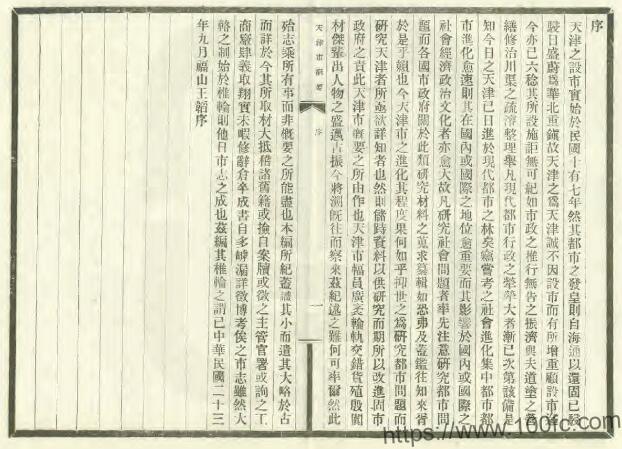 序
天津之設市實始於民國十有七年然其都市之發皇則自海通以還固已駸
駸日盛蔚為華北重鎮故天津之為天津誠不因設市而有所增重顧設市迄
今亦已六稔其所設施詎無可紀如市政之推行無告之振濟與夫道塗之葺
繕修治川渠之疏濬整理舉凡現代都市行政之犖犖大者漸已次第該備是
知今日之天津已日進於現代都市之林矣竊嘗考之社會進化集中都市都
市進化愈速則其在國內或國際之地位愈重要而其影響於國內或國際之
社會經濟政治文化者亦愈大故凡研究社會問題者率先注意研究都市問
題而各國市政府關於此類研究材料之蒐求纂輯如恐弗及蓋鑑往知來胥
於是乎賴也今天津市之進化其程度果何如乎抑世之為研究都市問題而
研究天津者所亟欲詳知者也然則儲跱資料以供研究而期所以改進固市
政府之責此天津市概要之所由作也天津市幅員廣袤輪軌交錯貨殖殷闐
材傑輩出人物之盛邁古振今將溯既往而察來茲紀述之難何可率爾然此
天津市概要
序
一
殆志乘所有事而非概要之所能盡也本編所紀蓋識其小而遺其大略於古
而詳於今其所取材大抵稽諸舊籍或撿自案牘或徵之主管官署或詢之工
商廠肆義取翔實未暇修辭倉卒成書自多罅漏詳徵博考俟之市志雖然大
輅之制始於椎輪則他日市志之成也茲編其椎輪之謂已中華民國二十三
年九月福山王韜序
https://www.100fc.com